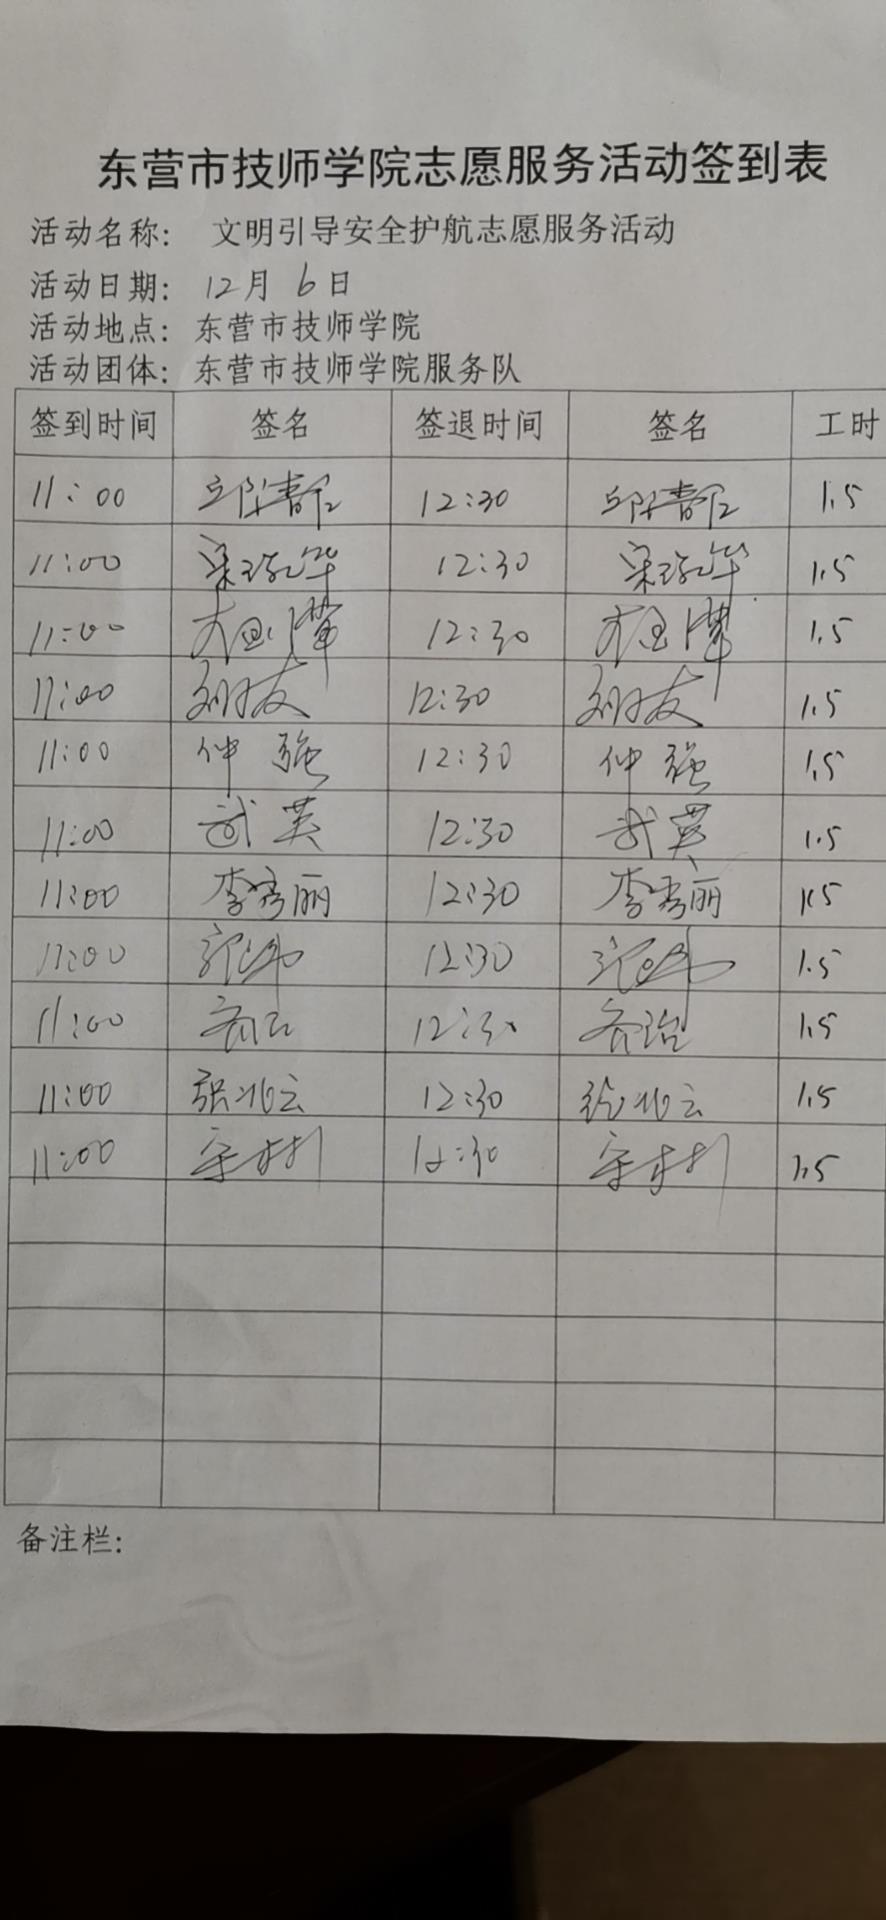 东营市技师学院志愿服务活动签到表
活动名称： 文明引导安全护航志愿服务活动
活动日期： 12月 6日
活动地点：东营市技师学院
活动团体：东营市技师学院服务队
签到时间 签名 签退时间 签名 工时
11:00 12:30 1.5
11:00 12:30 1.5
11:00 12:30 1.5
11:00 刘友 12:30 刘友 1.5
11:00 仲强 12:30 仲强 1.5
11:00 武英 12:30 武英 1.5
11:00 李秀丽 12:30 李秀丽 1.5
11:00 12:30 1.5
11:00 12:30 1.5
11:00 张兆云 12:30 张兆云 1.5
11:00 12:30 1.5
备注栏：